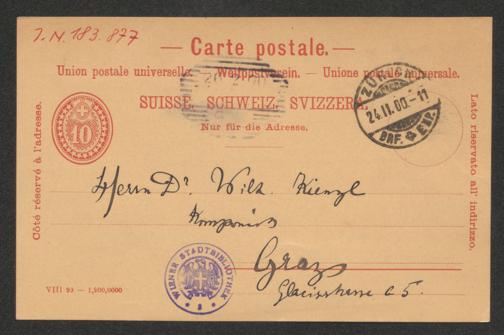 I.N. 183.877
— Carte postale. —
Union postale universelle. — Weltpostverein. — Unione postale universale.
SUISSE. SCHWEIZ. SVIZZERA.
Nur für die Adresse.
Côté réservé à l'adresse.
Lato riservato all' indirizzo.
10
ZÜRICH
24.II.00.-11
BRF. EXP.
Herrn Dr. Wilh. Kienzl
Komponist
Graz
Glacisstrasse
WIENER STADTBIBLIOTHEK
VIII 99 —